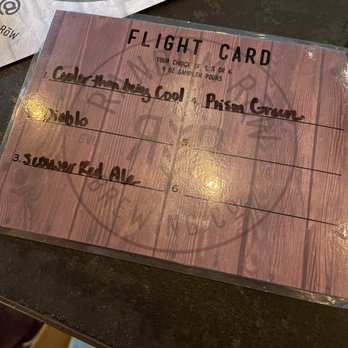 FLIGHT CARD
YOUR CHOICE OF 4, 5 OR 6
4 OZ SAMPLER POURS
1. Cooler than being Cool
4. Prism Green
Diablo
5.
3. Summer Red Ale
6.
BREWING